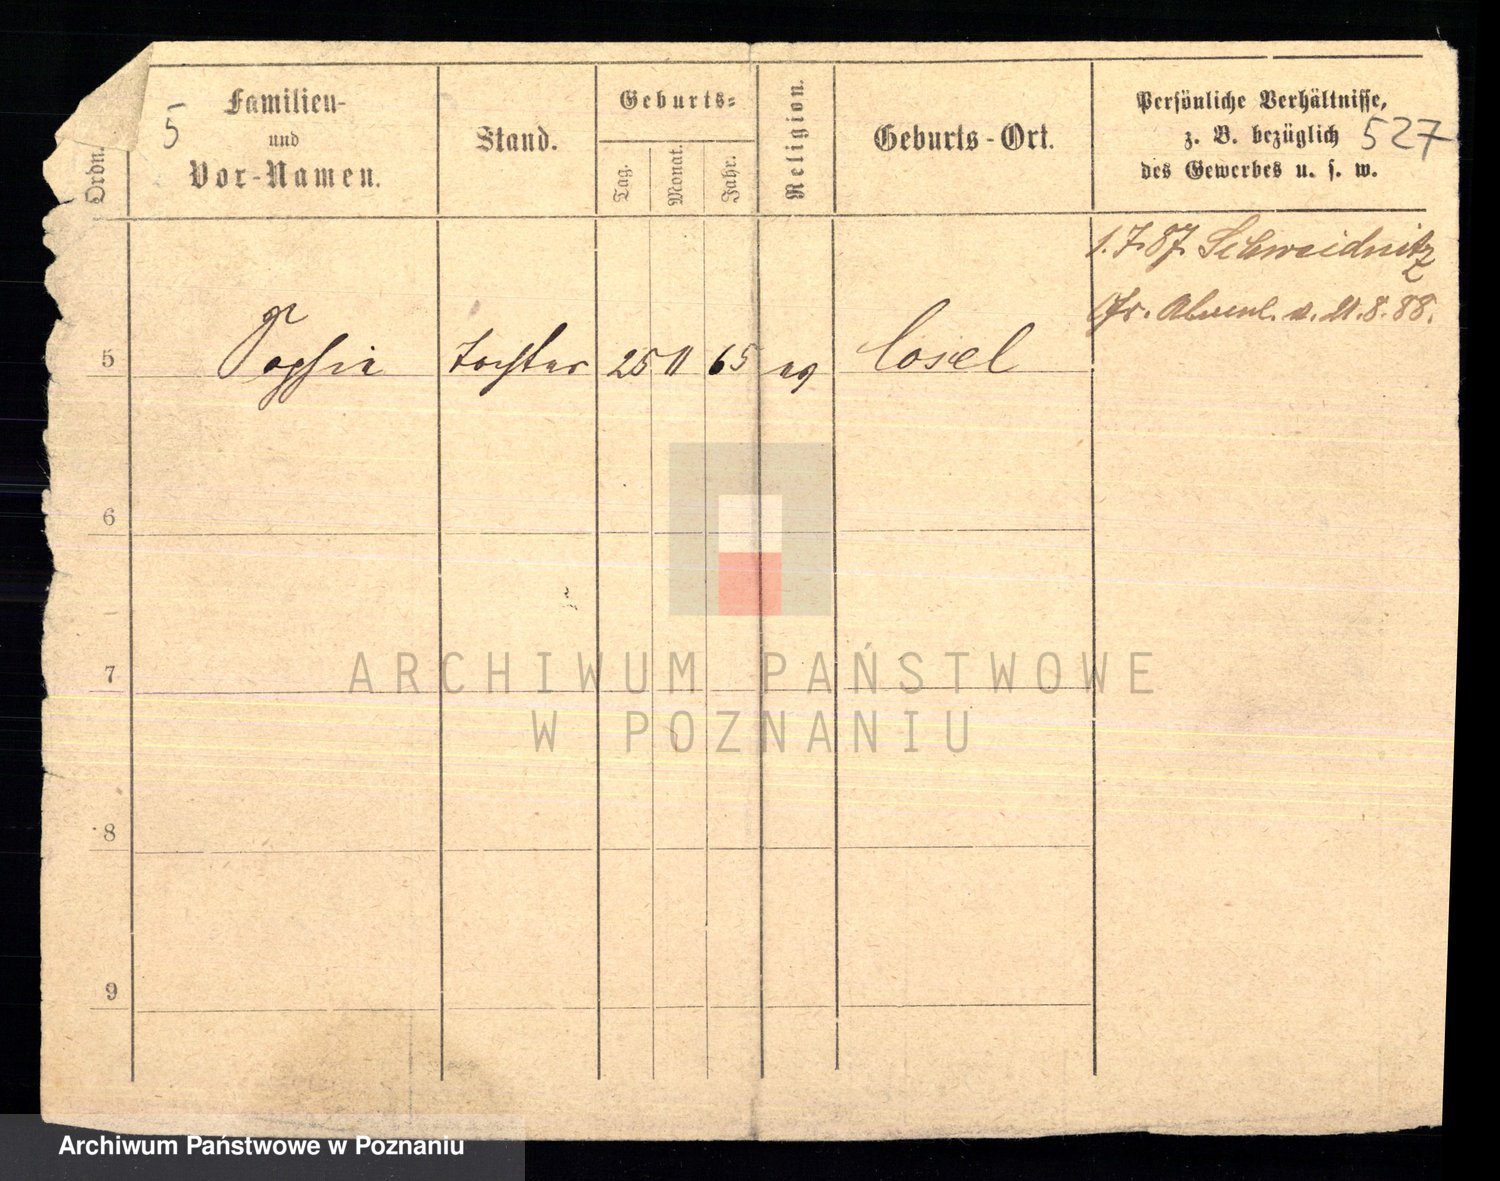 Ordn.
5
Familien-
und
Vor-Namen.
Stand.
Geburts-
Tag.
Monat.
Jahr.
Religion.
Geburts-Ort.
Persönliche Verhältnisse,
z. B. bezüglich
des Gewerbes u. s. w.
527
1.7.87. Schweidnitz
v. 21.8.88.
5 Sophie Tochter 25 11 65 ev Cosel
6
7
8
9
ARCHIWUM PAŃSTWOWE
W POZNANIU
Archiwum Państwowe w Poznaniu